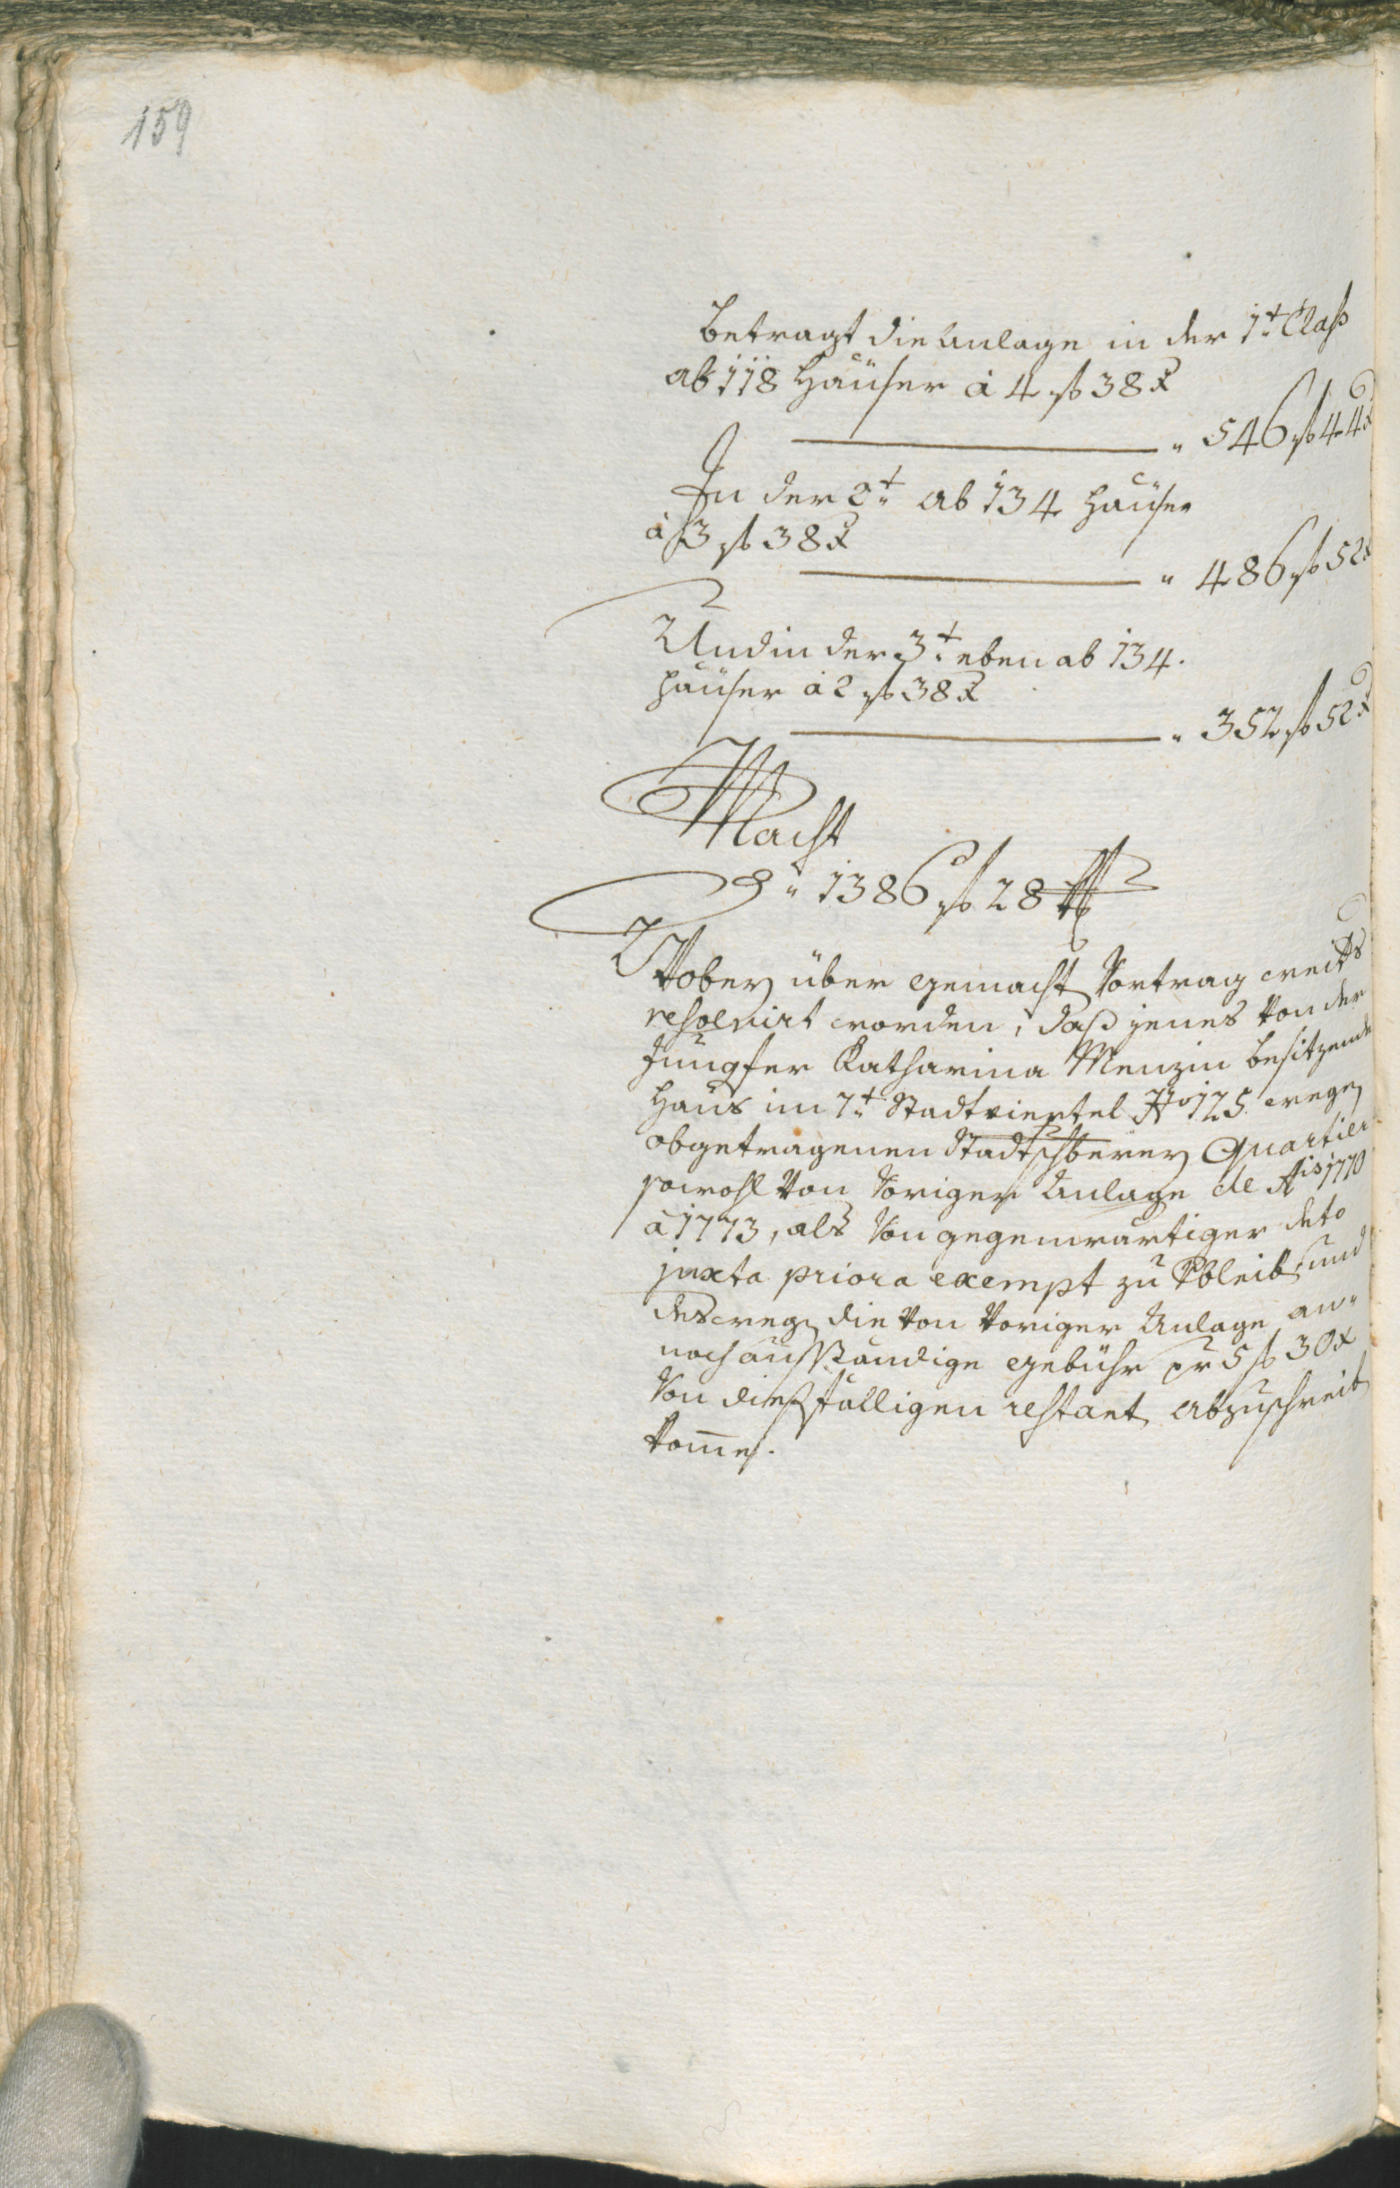 159
Betragt die Anlage in der 1t. Class
ab 118 Häuser â 4 fl 38 x
" 546 fl 44 x
In der 2t. ab 134 Häuser
â 3 fl 38 x
" 486 fl 52 x
Und in der 3t. eben ab 134.
Häuser â 2 fl 38 x
" 352 fl 52 x
Macht
" 1386 fl 28 x
Wobey über gemacht Vortrag
resolvirt worden, daß jenes von der
Jungfer Katharina Menzin besitzende
Haus im 1t. Stadtviertel No 125 wegen
abgetragenen Quartier
sowohl von voriger Anlage de Ais 1770
â 1773, als von gegenwärtiger deto
juxta priora exempt zu bleib und
deswegn die von voriger Anlage an-
noch ausständige gebühr pr 5 fl 30 x
von dießfälligen restant abzuschreib
komme.